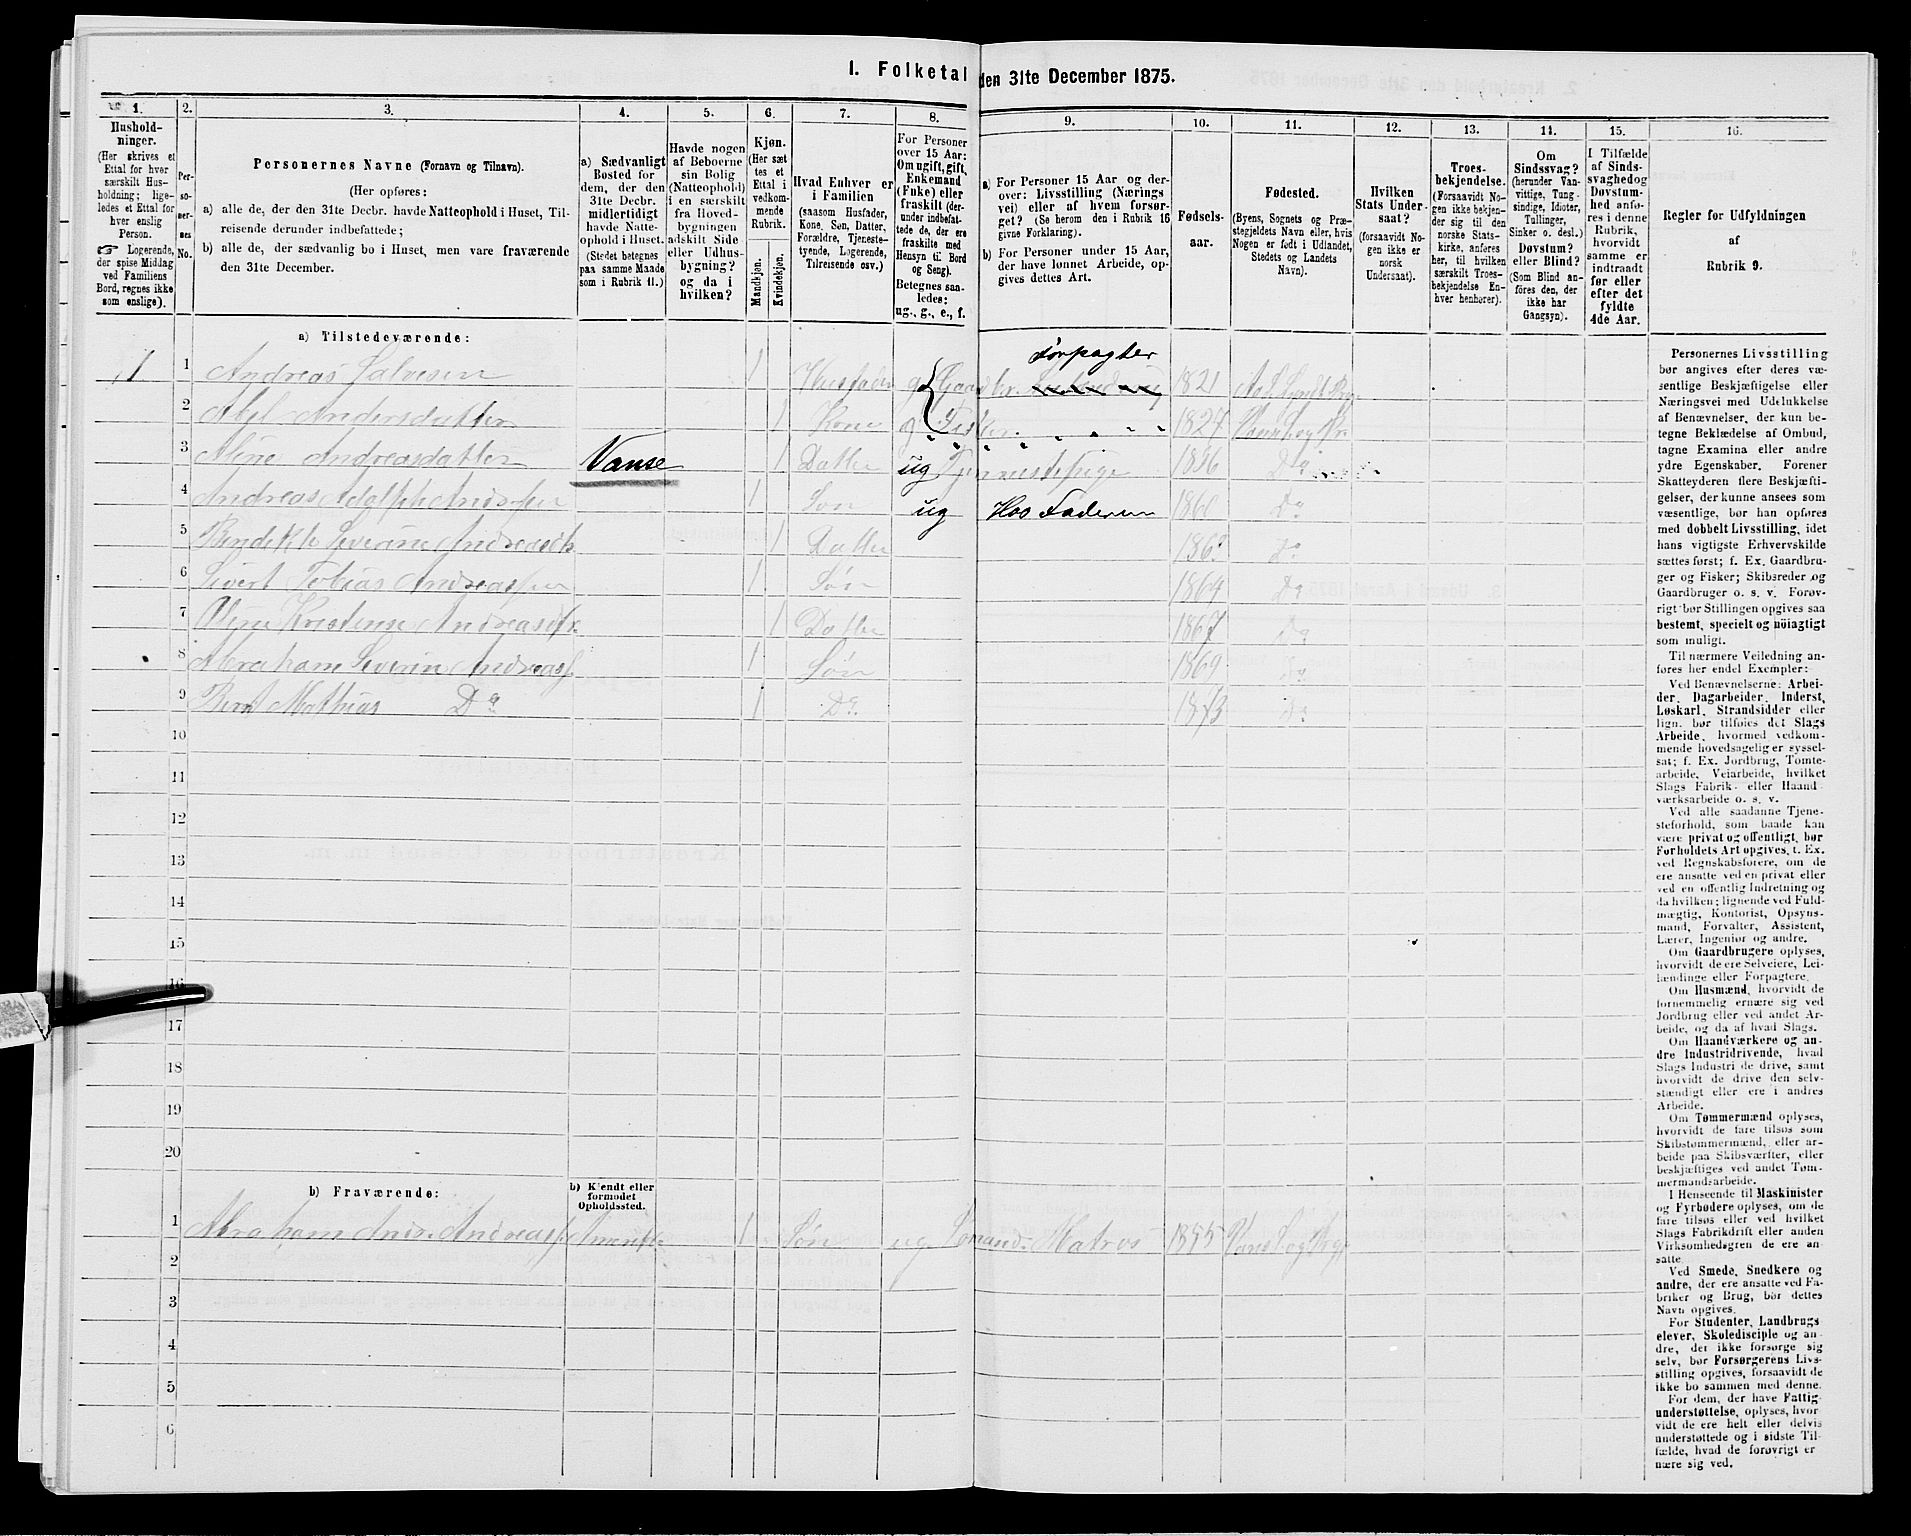 I. Folketal den 31te December 1875.
1. 2. 3. 4. 5. 6. 7. 8. 9. 10. 11. 12. 13. 14. 15. 16.
Hushold-
ninger.
(Her skrives et
Ettal for hver
særskilt Hus-
holdning; lige-
ledes et Ettal for
hver enslig
Person.
☞ Logerende,
der spise Middag
ved Familiens
Bord, regnes ikke
som enslige).
Per-
so-
ner-
nes
No.
Personernes Navne (Fornavn og Tilnavn).
(Her opføres:
a) alle de, der den 31te Decbr. havde Natteophold i Huset, Til-
reisende derunder indbefattede;
b) alle de, der sædvanlig bo i Huset, men vare fraværende
den 31te December.
a) Sædvanligt
Bosted for
dem, der den
31te Decbr.
midlertidigt
havde Natte-
ophold i Huset.
(Stedet betegnes
paa samme Maade
som i Rubrik 11.)
Havde nogen
af Beboerne
sin Bolig
(Natteophold)
i en særskilt
fra Hoved-
bygningen
adskilt Side
eller Udhus-
bygning?
og da i
hvilken?
Kjøn.
(Her sæt
tes et
Ettal i
vedkom-
mende
Rubrik.
Mandkjøn.
Kvindekjøn.
Hvad Enhver er
i Familien
(saasom Husfader,
Kone, Søn, Datter,
Forældre, Tjeneste-
tyende, Logerende,
Tilreisende osv.)
For Personer
over 15 Aar:
Om ugift, gift,
Enkemand
(Enke) eller
fraskilt (der-
under indbefat-
tede de, der ere
fraskilte med
Hensyn til Bord
og Seng).
Betegnes saa-
ledes:
ug., g., e., f.
a) For Personer 15 Aar og der-
over: Livsstilling (Nærings
vei) eller af hvem forsør-
get? (Se herom den i Rubrik 16
givne Forklaring).
b) For Personer under 15 Aar,
der have lønnet Arbeide, op-
gives dettes Art.
Fødsels-
aar.
Fødested.
(Byens, Sognets og Præ-
stegjeldets Navn eller, hvis
Nogen er født i Udlandet,
Stedets og Landets
Navn).
Hvilken
Stats Under-
saat?
(forsaavidt No-
gen ikke er
norsk
Undersaat).
Troes-
bekjendelse.
(Forsaavidt No-
gen ikke bekjen-
der sig til den
norske Stats-
kirke, anføres
her, til hvilken
særskilt Troes-
bekjendelse En-
hver henhører).
Om
Sindssvag?
(herunder Van-
vittige, Tung-
sindige, Idioter,
Tullinger,
Sinker o. desl.)
Døvstum?
eller Blind?
(Som Blind an-
føres den, der
ikke har
Gangsyn).
I Tilfælde
af Sinds-
svaghed og
Døvstum-
hed anfø-
res i denne
Rubrik,
hvorvidt
samme er
indtraadt
før eller
efter det
fyldte
4de Aar.
Regler for Udfyldningen
af
Rubrik 9.
a) Tilstedeværende:
1 1 Andreas Salvesen 1 Husfader g Gaardbr. Forpagter 1821
2 Abel Andersdatter 1 Kone g Fisker 1824
3 Aline Andreasdatter Vanse 1 Datter ug Tjenestepige 1856 Do
4 Andreas Adolph Andreassen 1 Søn ug Hos Faderen 1860 Do
5 Bendikte Severine Andreasdtr 1 Datter 1862 Do
6 Sivert Tobias Andreassen 1 Søn 1864 Do
7 Oline Kristense Andreasdtr. 1 Datter 1867 Do
8 Abraham Severin Andreass. 1 Søn 1869 Do
9 Bernt Mathias Do 1 Do 1873 Do
10
11
12
13
14
15
16
17
18
19
20
b) Fraværende:
b) Kjendt eller
formodet
Opholdssted.
1 Abraham Andreass. Amerika 1 Søn ug Sømand. Matros 1855
2
3
4
5
6
Personernes Livsstilling
bør angives efter deres væ-
sentlige Beskjæftigelse eller
Næringsvei med Udelukkelse
af Benævnelser, der kun be-
tegne Beklædelse af Ombud,
tagne Examina eller andre
ydre Egenskaber. Forener
Skatteyderen flere Beskjæfti-
gelser, der kunne ansees som
væsentlige, bør han opføres
med dobbelt Livsstilling, idet
hans vigtigste Erhvervskilde
sættes først; f. Ex. Gaardbru-
ger og Fisker; Skibsreder og
Gaardbruger o. s. v. Forøv-
rigt bør Stillingen opgives saa
bestemt, specielt og nöiagtigt
som muligt.
Til nærmere Veiledning an-
føres her endel Exempler:
Ved Benævnelserne: Arbei-
der, Dagarbeider, Inderst,
Løskarl, Strandsidder eller
lign. bør tilføies det Slags
Arbeide, hvormed vedkom-
mende hovedsagelig er syssel-
sat; f. Ex. Jordbrug, Tomte-
arbeide, Veiarbeide, hvilket
Slags Fabrik- eller Haand-
værksarbeide o. s. v.
Ved alle saadanne Tjene-
steforhold, som baade kan
være privat og offentligt, bør
Forholdets Art opgives, t. Ex.
ved Regnskabsførere, om de
ere ansatte ved en privat eller
ved en offentlig Indretning og
da hvilken; lignende ved Fuld-
mægtig, Kontorist, Opsyns-
mand, Forvalter, Assistent,
Lærer, Ingeniør og andre.
Om Gaardbrugere oplyses,
hvorvidt de ere Selveiere, Lei-
lændinge eller Forpagtere.
Om Husmænd, hvorvidt de
fornemmelig ernære sig ved
Jordbrug eller ved andet Ar-
beide, og da af hvad Slags.
Om Haandværkere og an-
dre Industridrivende, hvad
Slags Industri de drive, samt
hvorvidt de drive den selv-
stændigt eller ere i andres
Arbeide.
Om Tømmermænd oplyses,
hvorvidt de fare tilsøs som
Skibstømmermænd, eller ar-
beide paa Skibsværfter, eller
beskjæftiges ved andet Tøm-
mermandsarbeide.
I Henseende til Maskinister
og Fyrbødere oplyses, om de
fare tilsøs eller ved hvilket
Slags Fabrikdrift eller anden
Virksomhedsgren de ere an-
satte.
Ved Smede, Snedkere og
andre, der ere ansatte ved Fa-
briker og Brug, bør dettes
Navn opgives.
For Studenter, Landbrugs
elever, Skoledisciple og an-
dre, det ikke forsørge sig
selv, bør Forsørgerens Livs-
stilling opgives, forsaavidt de
ikke bo sammen med denne.
For dem, der have Fattig-
understøttelse, oplyses, hvor-
vidt de ere helt eller delvis
understøttede og i sidste Til-
fælde, hvad de forøvrigt er-
nære sig ved.